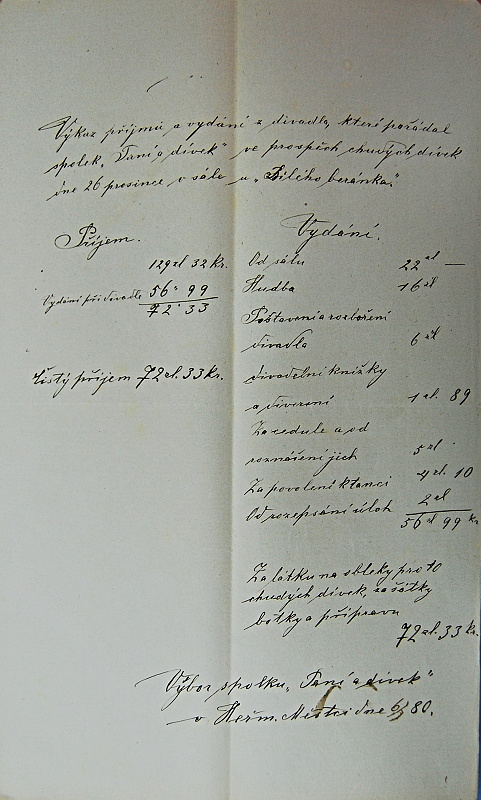 Výkaz příjmů a vydání z divadla, které pořádal
spolek „Paní a dívek" ve prospěch chudých dívek
dne 26 prosince v sále u „Bílého beránka."
Příjem.
129 zl 32 kr.
Vydání při divadle 56 " 99
72 " 33
Čistý příjem 72 zl. 33 kr.
Vydání.
Od sálu 22 zl —
Hudba 16 zl
Postavení a rozboření
divadla 6 zl
divadelní knížky
a 1 zl. 89
Za cedule a od
roznášení jich 5 zl.
Za povolení k tanci 4 zl. 10
Od rozepsání úloh 2 zl
56 zl 99 kr
Za látku na obleky pro 10
chudých dívek, za šátky
botky a přípravu
72 zl. 33 kr.
Výbor spolku „Paní a dívek"
v Heřm. Městci dne 80.